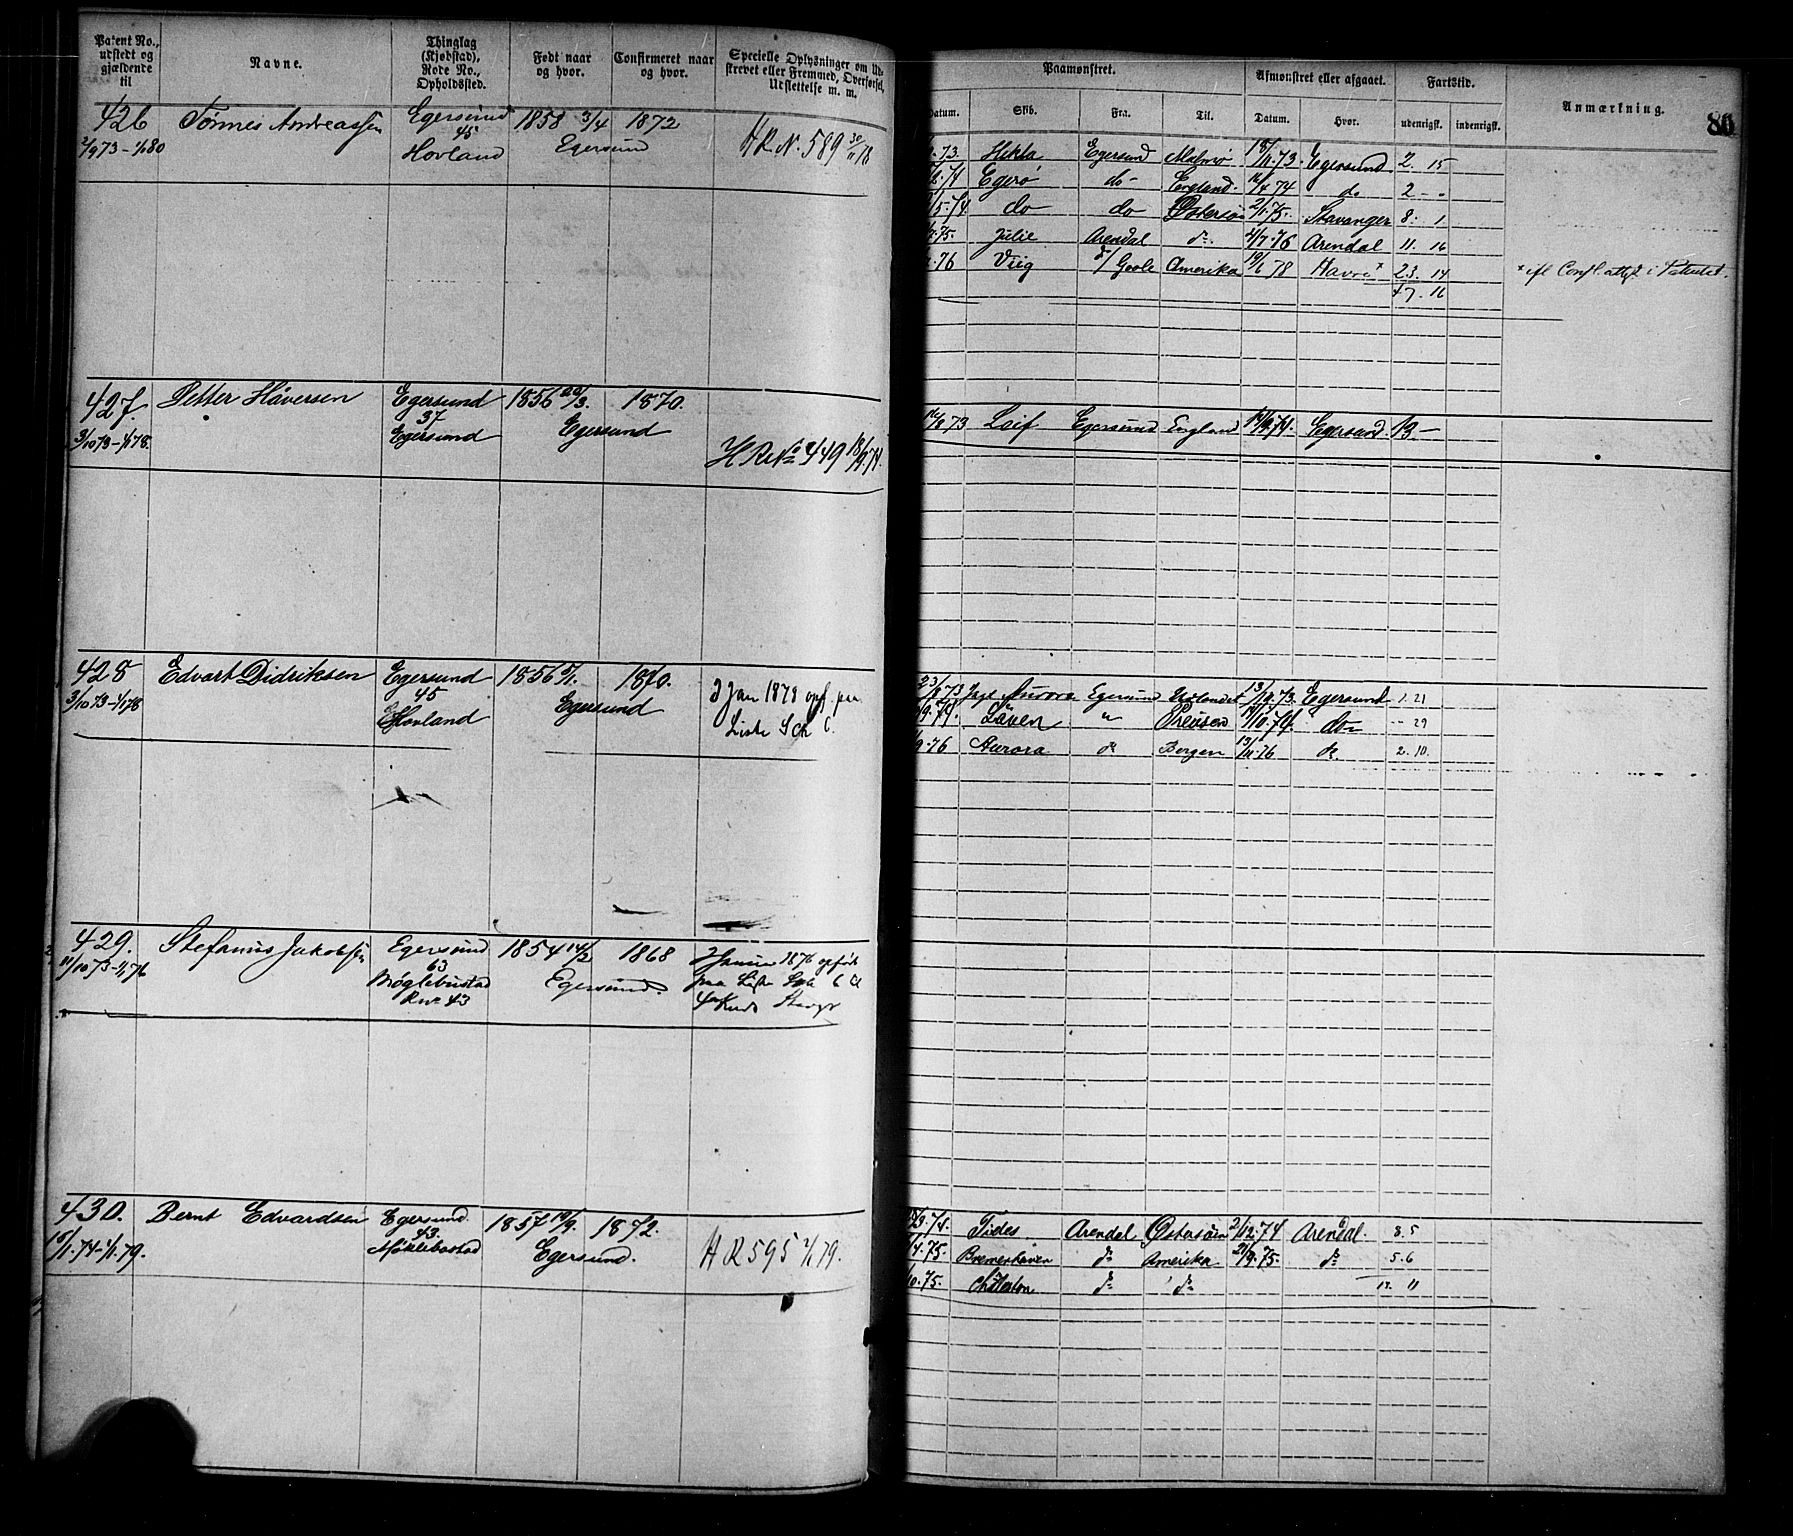 Patent No., udstedt og gjældende til
Navne.
Thinglag (Kjøbstad), Rode No., Opholdssted.
Født naar og hvor.
Confirmeret naar og hvor.
Specielle Oplysninger om Udskrevet eller Fremmed, Overførsel, Udslettelse m. m.
Paamønstret.
Afmønstret eller afgaaet.
Fartstid.
Anmærkning.
86
Datum. Skib. Fra. Til. Datum. Hvor. udenrigsk. indenrigsk.
426 Tønnes Andreassen Egersund 1858 3/4 1872
45
Hovland Egersund H R N. 589 30/11 78
73. Hekla Egersund Malmø 18/11.73. Egersund 2. 15
74 Egerø do England. 16/4 74 do 2 - -
5.74 do do Østersøen 2/1.75. Stavanger 8. 1
75. Julie Arendal do. 21/7.76 Arendal 11. 16
76 Viig d/ Goole Amerika 19/6 78 Havre x 23. 14 x ifl Confl. attest i Patentet.
47. 16
427. Petter Håversen Egersund 1856 20/3. 1870.
37
3/10 73-1/1 78. Egersund Egersund
H R No 449 18/9.74.
73 Leif Egersund England Egersund 13 -
428 Edvart Didriksen Egersund 1856 5/1. 1870.
45
3/10 73-1/1 78 Hovland Egersund
2 Jan 1878 opf. paa
Liste Sch C.
23/8 73 Jagt Aurora Egersund Udlandet 13/10.73. Egersund 1. 21
9.74. Løven " Preusen 14/10.74. do - 29
9.76 Aurora do Bergen 13/11.76 do. 2. 10.
429. Stefanus Jakobsen Egersund 1854 14/2 1868
63
11/10 73-1/1 76 Møglebustad Egersund.
Rno 43
2 Januar 1876 opført
paa Liste
430. Bernt Edvardsen Egersund 1857 19/9. 1872.
43
1.74-1/1.79. Møklebostad Egersund. H R 595 2/1 79.
3.74. Tides Arendal Østersøen 2/12.74 Arendal. 8.5
4.75. Bremerhaven do Amerika 21/9.75. do 5.6
10.75. Charleston do do 13. 11